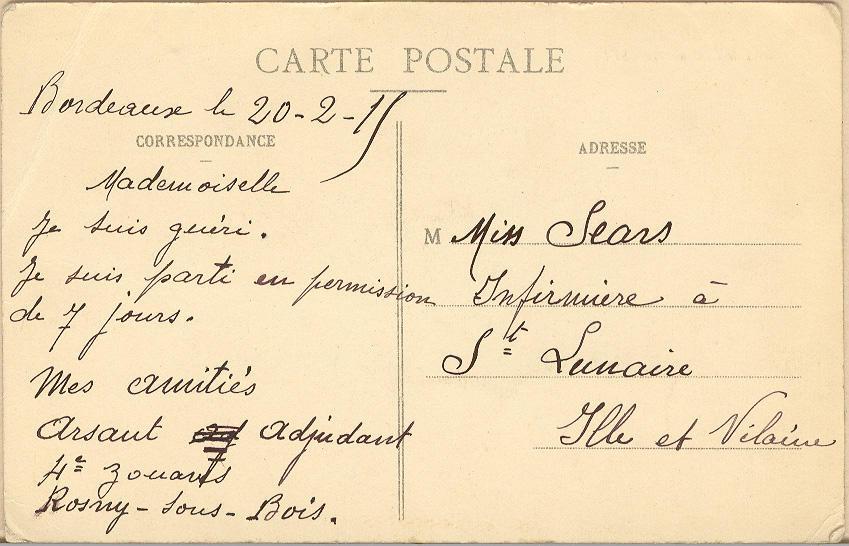 CARTE POSTALE
Bordeaux le 20-2-15
CORRESPONDANCE
Mademoiselle
Je suis guéri.
Je suis parti en permission
de 7 jours.
Mes amitiés
Arsaut adjudant
4e zouaves
Rosny-sous-Bois.
ADRESSE
M Miss Sears
Infirmière à
St Lunaire
Ille et Vilaine